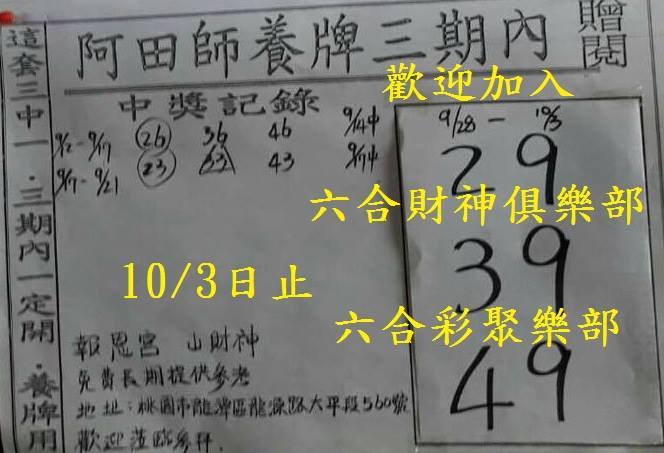 阿田師養牌三期內
贈閱
這套三中一·三期內一定開·養牌用
中獎記錄
9/2-9/17 26 36 46 9/14中
9/17-9/21 23 33 43 9/17中
歡迎加入
9/28-10/3
29
六合財神俱樂部
39
10/3日止
六合彩聚樂部
49
報恩宮 山財神
免費長期提供參考
地址:桃園市龍潭區龍源路大平段560號
歡迎蒞臨參拜.